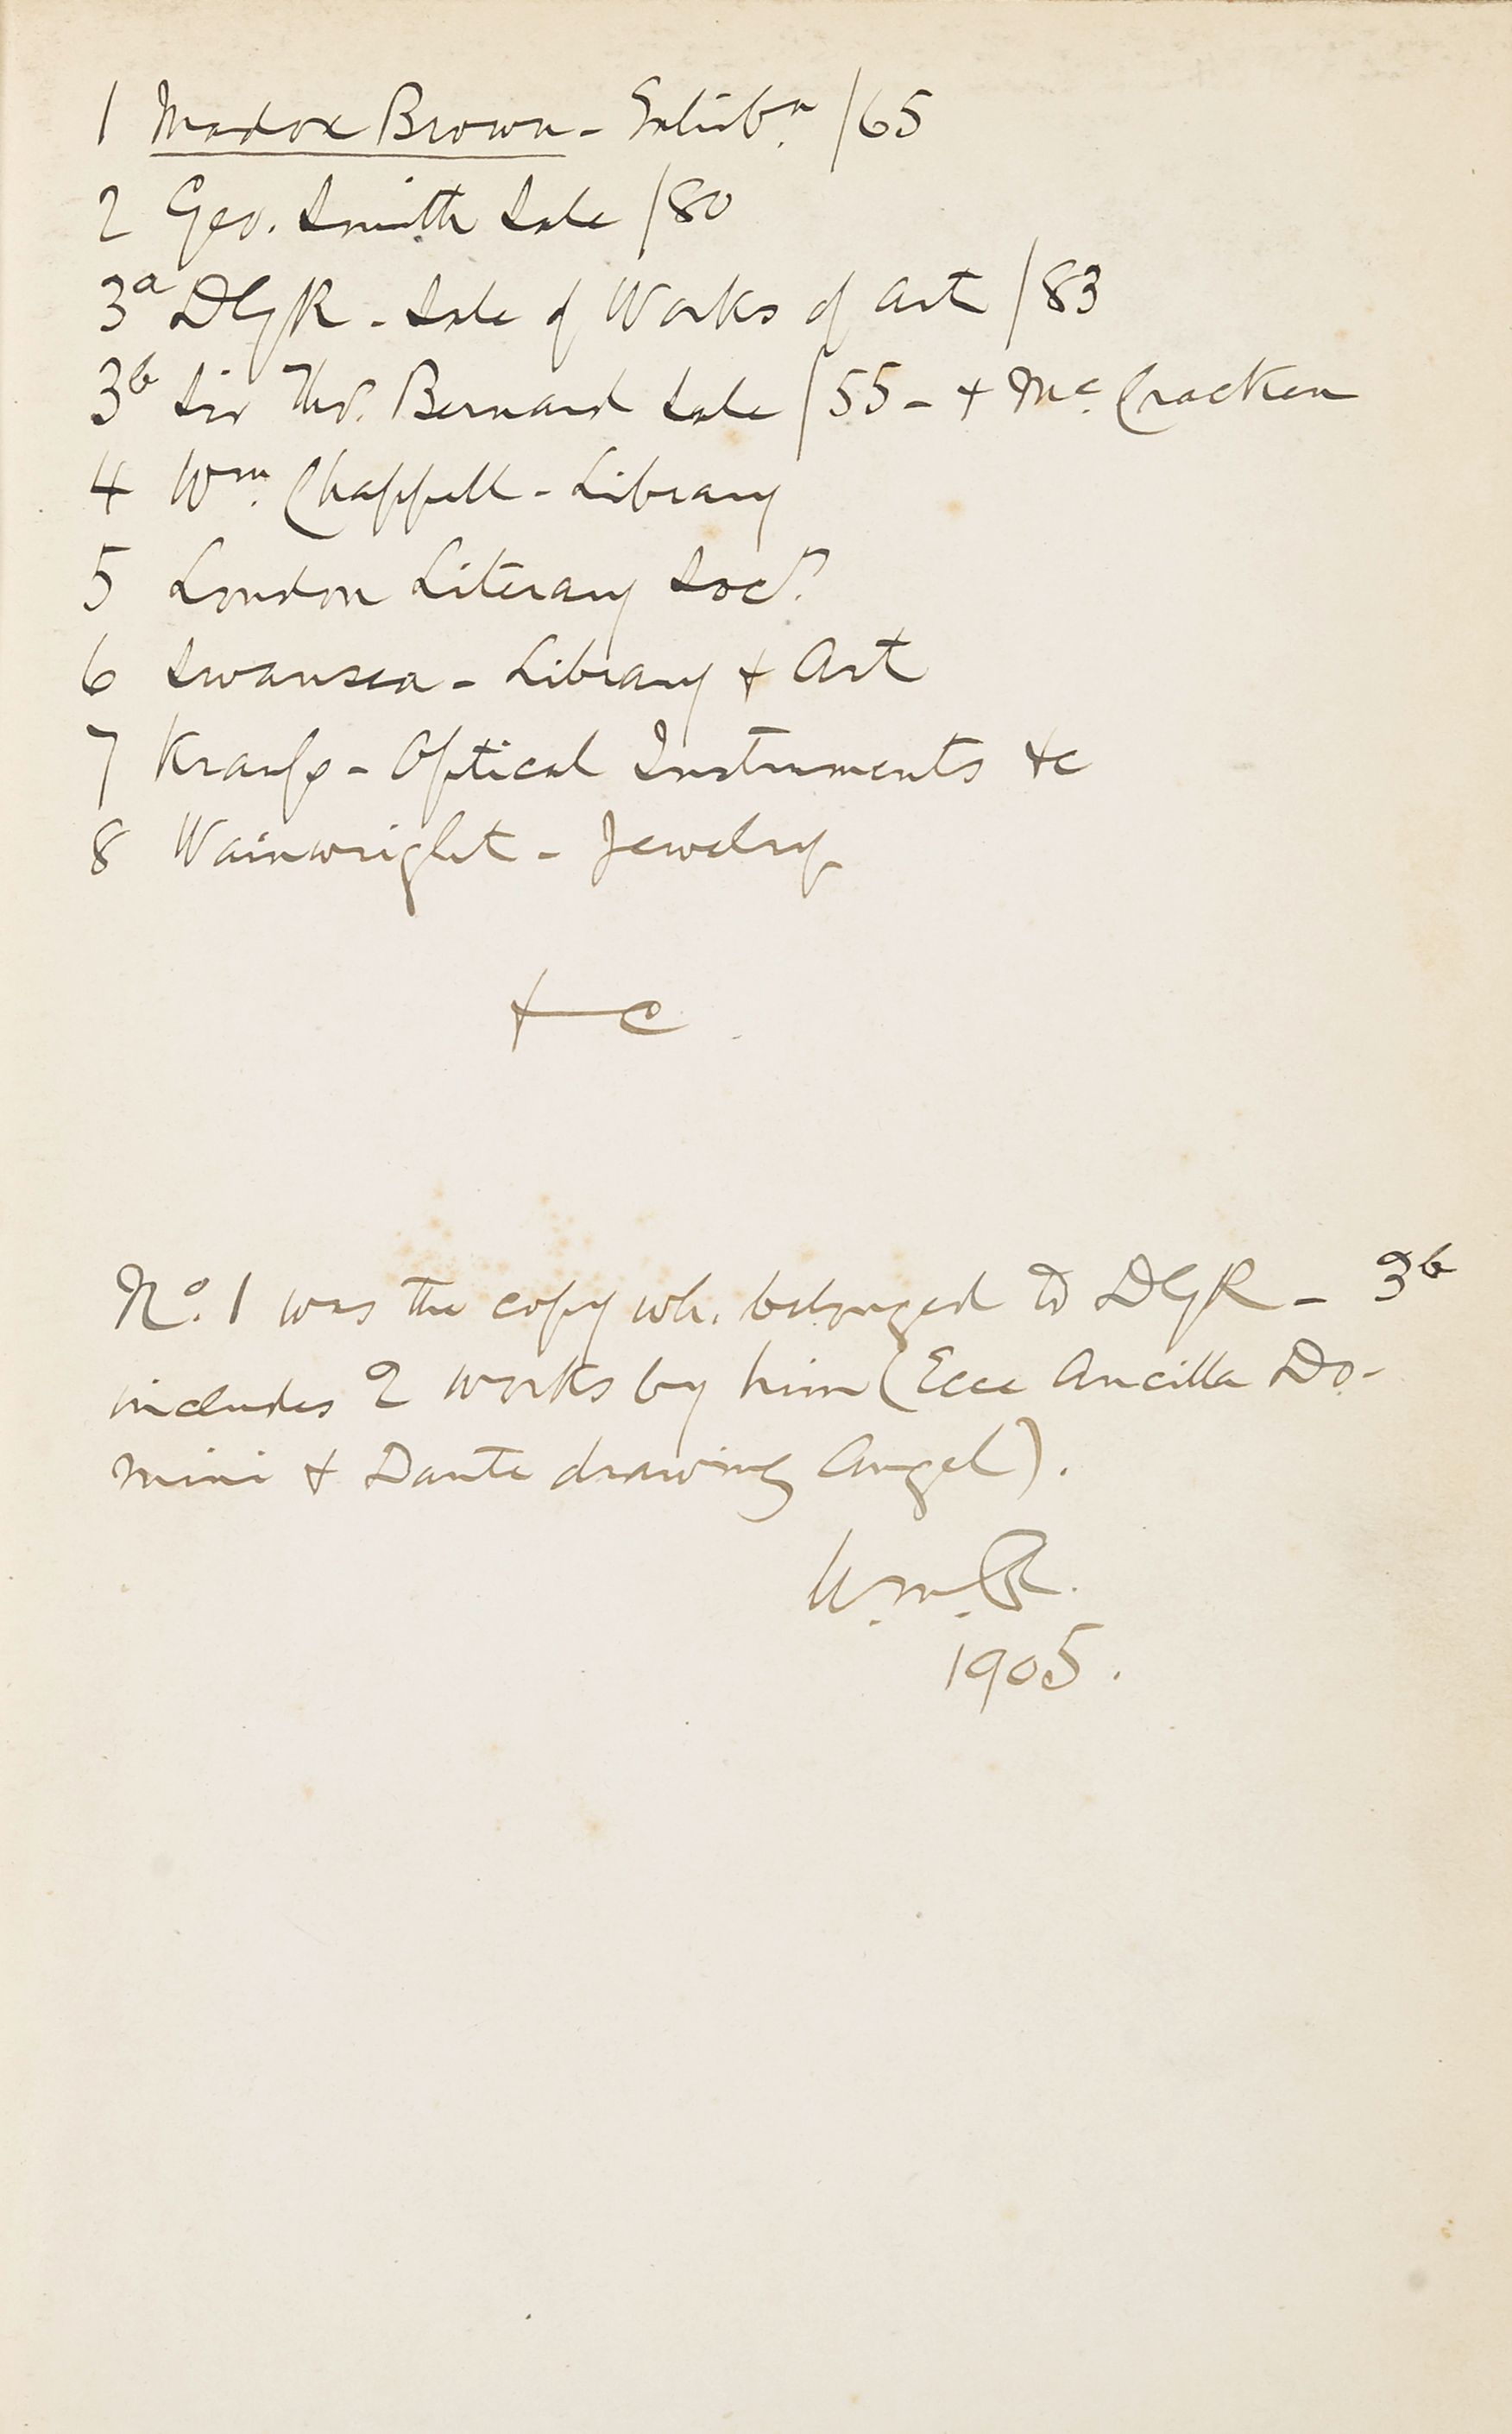 1 Madox Brown - Exhibn. /65
2 Geo. Smith Sale /80
3a DGR - Sale of Works of Art /83
3b Sir Thos. Bernard Sale /55 - + McCracken
4 Wm. Chappell - Library
5 London Literary Socy.
6 Swansea - Library + Art
7 Krauss - Optical Instruments +c
8 Wainwright - Jewelry
+c
No. 1 was the copy wh. belonged to DGR - 3b
includes 2 works by him (Ecce Ancilla Do-
mini + Dante drawing Angel).
W.M.R.
1905.